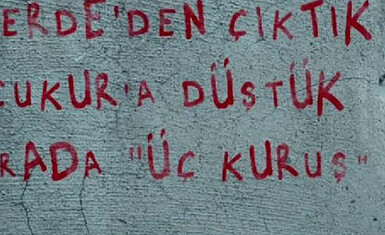 ERDE'DEN ÇIKTIK
ÇUKUR'A DÜŞTÜK
RADA "ÜÇ KURUŞ"